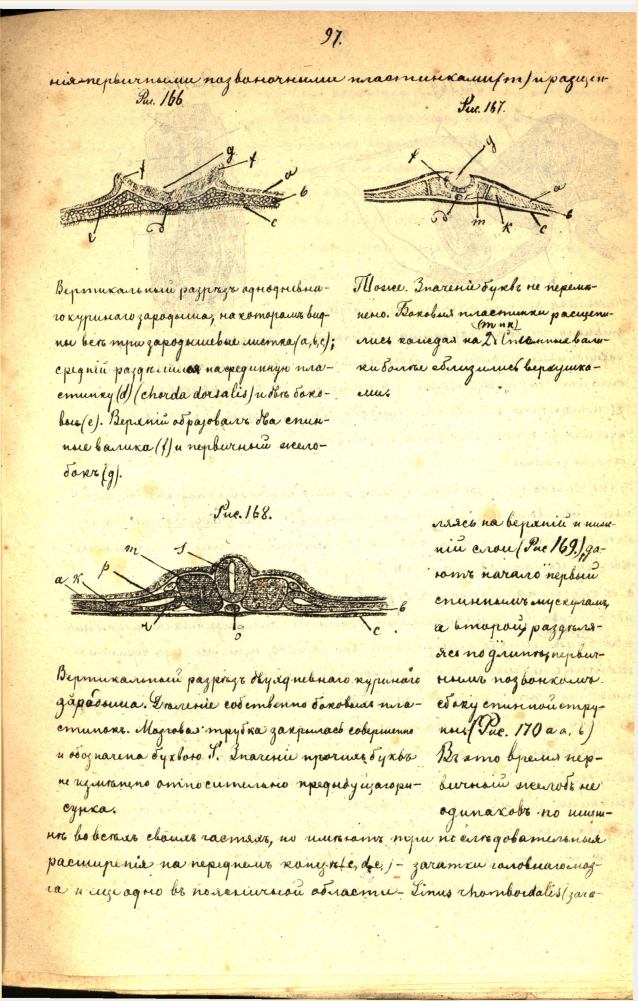 97.
нія первичными позвоночными пластинками (m) и расщеп-
Рис. 166
f g f a b c d e
Вертикальный разрѣзъ однодневна-
го куринаго зародыша, на которомъ вид-
ны всѣ три зародышевые листка (a, b, c);
средній раздѣлился на срединную пла-
стинку (d) (chorda dorsalis) и двѣ боко-
выя (e). Верхній образовалъ два спин-
ные валика (f) и первичный жело-
бокъ (g).
Рис. 167.
f g a b c d m k
Тоже. Значеніе буквъ не перемѣ-
нено. Боковыя пластинки расщепи-
лись каждая на 2 (m и k). Спинные вали-
ки болѣе сблизились верхушка-
ми
Рис. 168.
m S p k a b c d
Вертикальный разрѣзъ двухдневнаго куринаго
зародыша. Дѣленіе собственно боковыхъ пла-
стинокъ. Мозговая трубка закрылась совершенно
и обозначена буквою S. Значеніе прочихъ буквъ
не измѣнено относительно предыдущаго ри-
сунка.
ляясь на верхній и ниж-
ній слои (Рис 169.), да-
ютъ начало первый
спиннымъ мускуламъ,
а второй, раздѣля-
ясь по длинѣ, первич-
нымъ позвонкамъ
сбоку спинной стру-
ны (Рис. 170 a a, b)
Въ это время пер-
вичный желобъ не
одинаковъ по шири-
нѣ во всѣхъ своихъ частяхъ, но имѣютъ три послѣдовательныя
расширенія на переднемъ концѣ (c, d, e,) - зачатки головнаго моз-
га и еще одно въ поясничной области - Sinus rhomboidalis (зача-